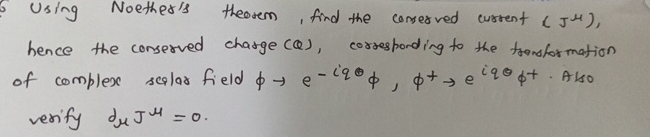 Using Noether's theorem, find the conserved current (J^μ),
hence the conserved charge (Q), corresponding to the transformation
of complex scalar field ϕ → e^{-iqθ}ϕ, ϕ† → e^{iqθ}ϕ†. Also
verify d_μ J^μ = 0.